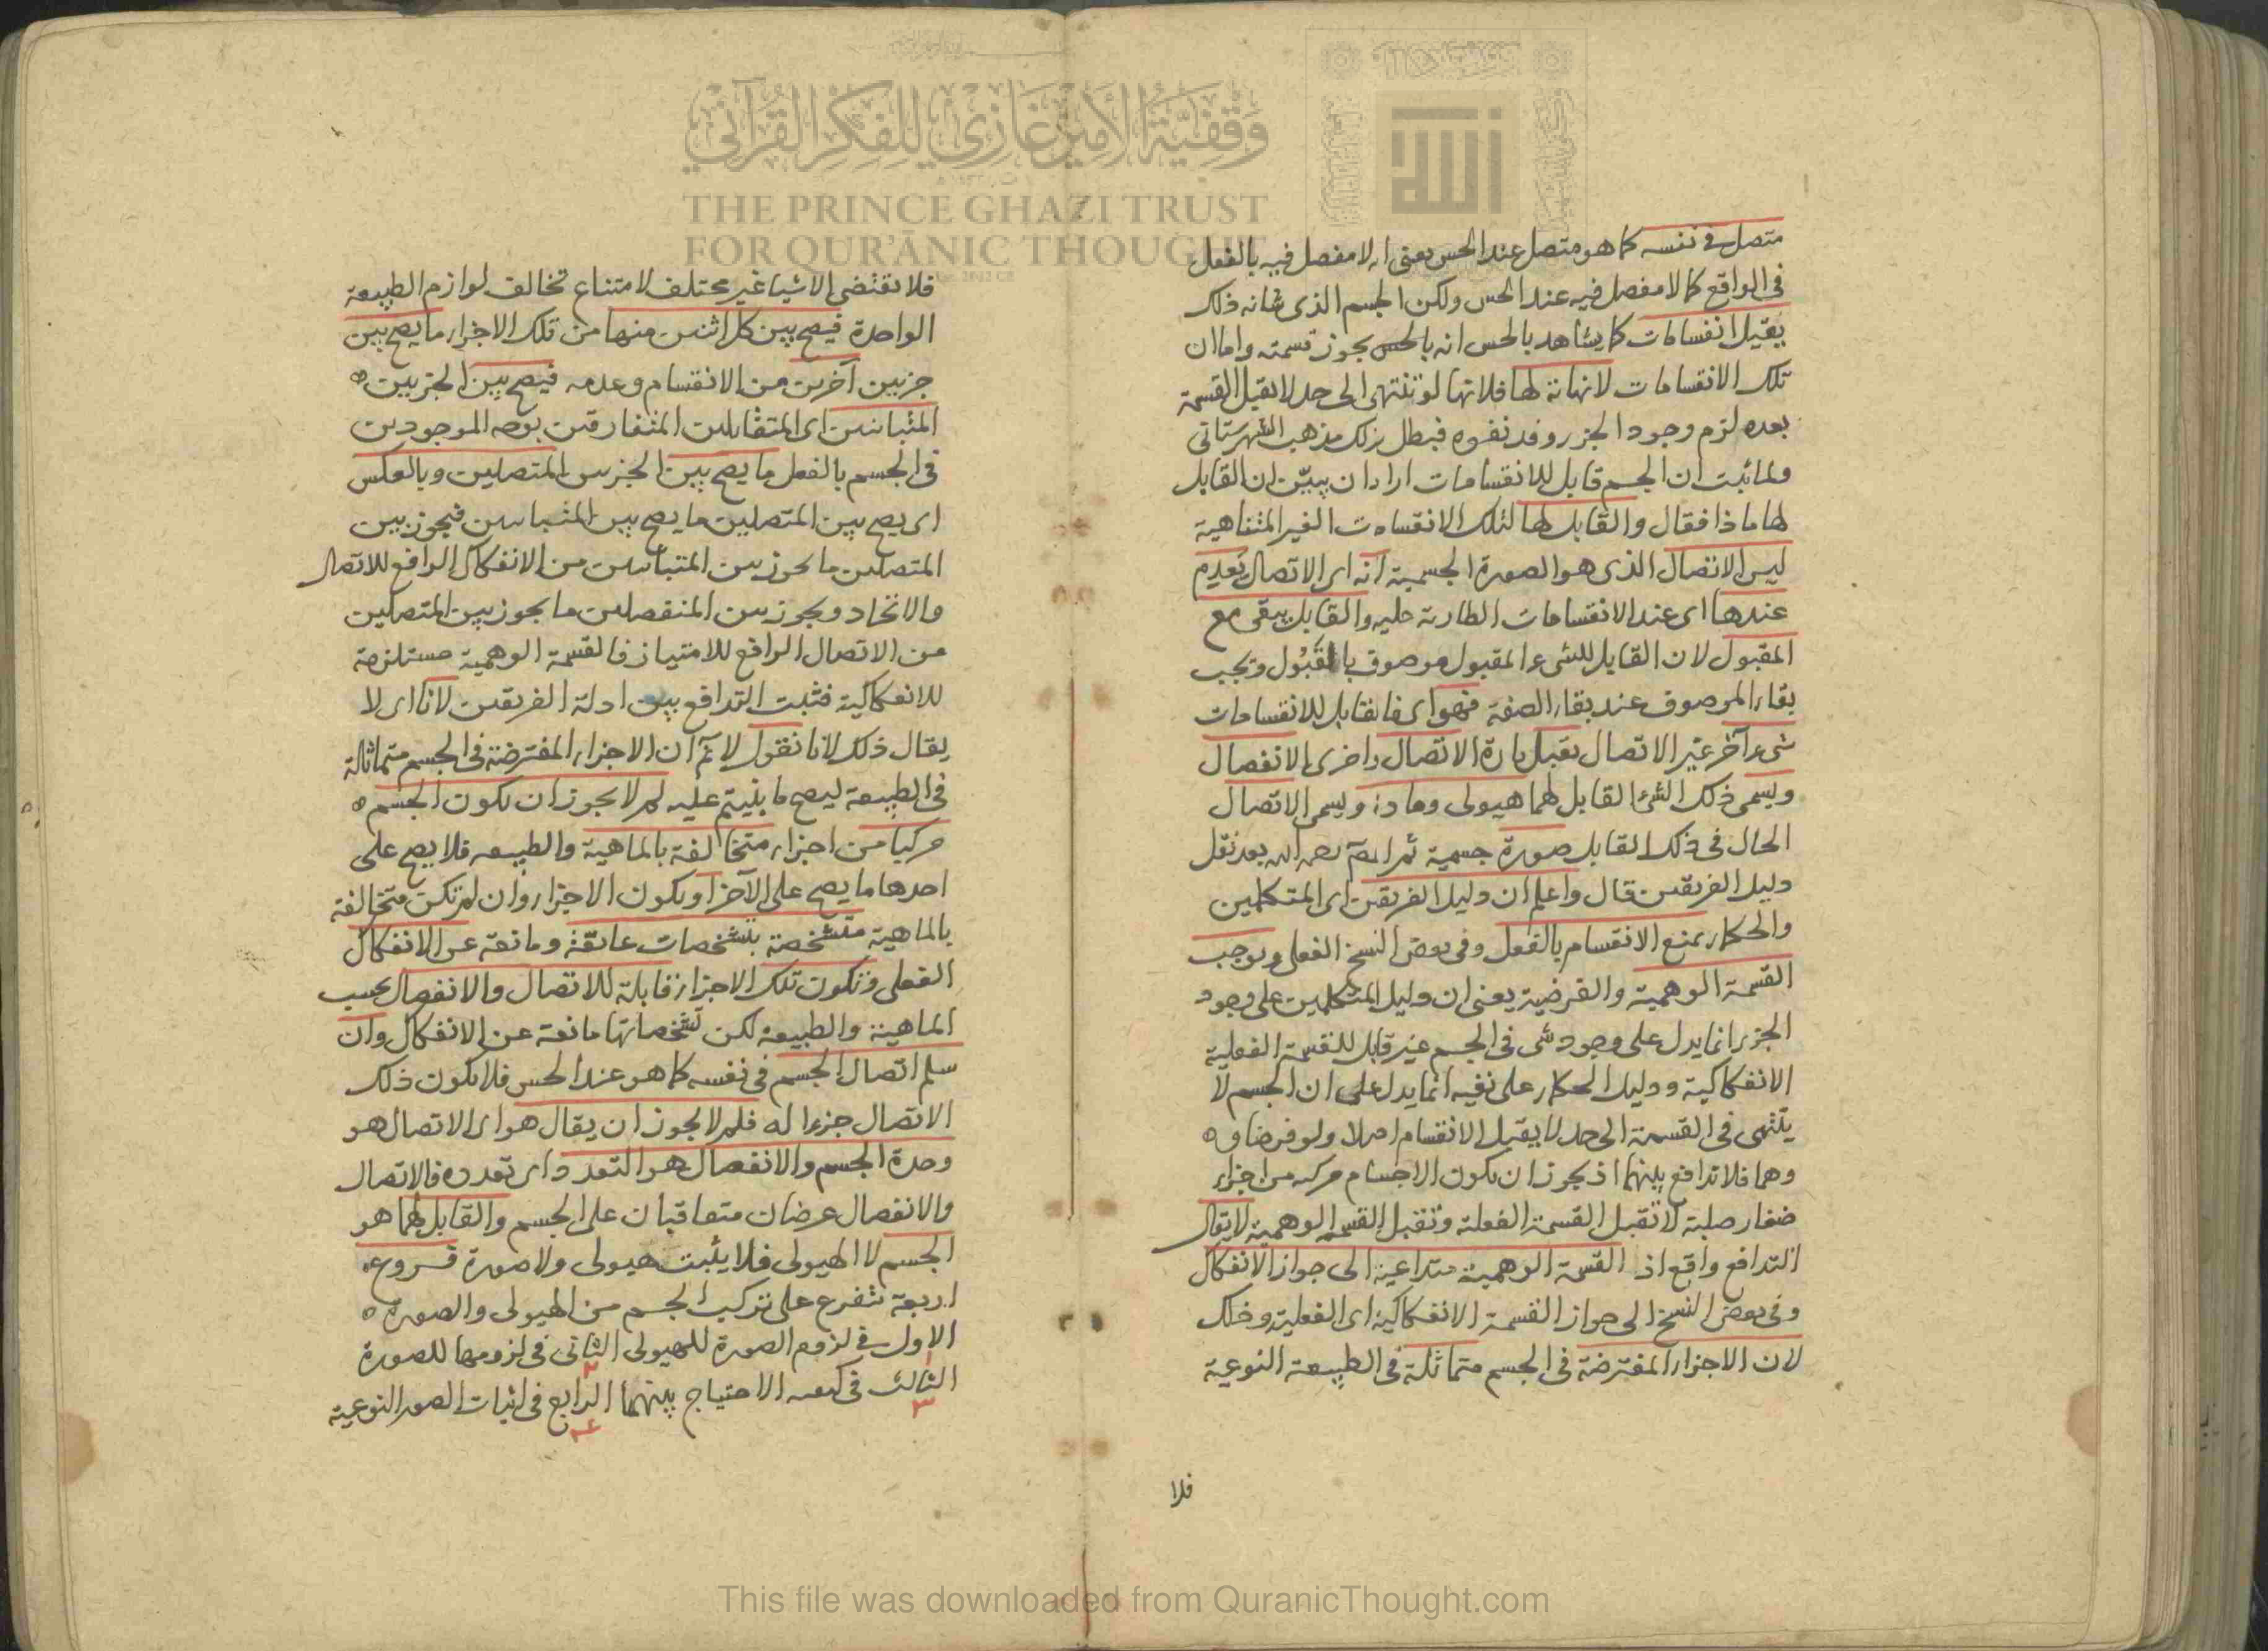 متصل في نفسه كما هو متصل عند الحس يعنى انه لا مفصل فيه بالفعل
في الواقع كما لا مفصل فيه عند الحس ولكن الجسم الذى شانه ذلك
يقبل انقسامات كما يشاهد بالحس انه بالحس يجوز قسمته واما ان
تلك الانقسامات لا نهاية لها فلانها لو تنتهى الى حد لا يقبل القسمة
بعده لزم وجود الجزء وقد نفوه فبطل بذلك مذهب الشهرستانى
ولما ثبت ان الجسم قابل للانقسامات اراد ان يبين ان القابل
لها ماذا فقال والقابل لها لتلك الانقسامات الغير المتناهية
ليس الاتصال الذى هو الصورة الجسمية انه اى الاتصال يعدم
عندها اى عند الانقسامات الطارية عليه والقابل يبقى مع
المقبول لان القابل للشىء المقبول موصوف بالقبول ويجب
بقاء الموصوف عند بقاء الصفة فهو اى فالقابل للانقسامات
شىء آخر غير الاتصال يقبل تارة الاتصال واخرى الانفصال
ويسمى ذلك الشئ القابل لهما هيولى ومادة ويسمى الاتصال
الحال في ذلك القابل صورة جسمية ثم المص رحمه الله بعد نقل
دليل الفريقين قال واعلم ان دليل الفريقين اى المتكلمين
والحكماء يمنع الانقسام بالفعل وفى بعض النسخ الفعلى ويوجب
القسمة الوهمية والفرضية يعنى ان دليل المتكلمين على وجود
الجزء انما يدل على وجود شى فى الجسم غير قابل للقسمة الفعلية
الانفكاكية ودليل الحكماء على نفيه انما يدل على ان الجسم لا
ينتهى فى القسمة الى حد لا يقبل الانقسام اصلا ولو فرضا و
وهما فلا تدافع بينهما اذ يجوز ان يكون الاجسام مركبة من اجزاء
صغار صلبة لا تقبل القسمة الفعلية وتقبل القسمة الوهمية لا يقال
التدافع واقع اذ القسمة الوهمية متداعية الى جواز الانفكاك
وفى بعض النسخ الى جواز القسمة الانفكاكية اى الفعلية وذلك
لان الاجزاء المفترضة فى الجسم متماثلة فى الطبيعة النوعية
فلا
فلا تقتضى الاشياء غير مختلف لامتناع تخالف لوازم الطبيعة
الواحدة فيصح بين كل اثنين منها من تلك الاجزاء ما يصح بين
جزئين آخرين من الانقسام وعدمه فيصح بين الجزئين
المتباينين اى المتقابلين المتفارقين الموجودين
فى الجسم بالفعل ما يصح بين الجزئين المتصلين وبالعكس
اى يصح بين المتصلين ما يصح بين المتباينين فيجوز بين
المتصلين ما يجوز بين المتباينين من الانفكاك الرافع للاتصال
والاتحاد ويجوز بين المنفصلين ما يجوز بين المتصلين
من الاتصال الرافع للامتياز فالقسمة الوهمية مستلزمة
للانفكاكية فثبت التدافع بين ادلة الفريقين لانا اى لا
يقال ذلك لانا نقول لا نم ان الاجزاء المفترضة فى الجسم متماثلة
فى الطبيعة ليصح ما بنيتم عليه لم لا يجوز ان يكون الجسم
مركبا من اجزاء متخالفة بالماهية والطبيعة فلا يصح على
احدها ما يصح على الآخر او يكون الاجزاء وان لم تكن متخالفة
بالماهية متشخصة بتشخصات عايقة ومانعة عن الانفكاك
الفعلى وتكون تلك الاجزاء قابلة للاتصال والانفصال بحسب
الماهية والطبيعة لكن تشخصاتها مانعة عن الانفكاك وان
سلم اتصال الجسم فى نفسه كما هو عند الحس فلا يكون ذلك
الاتصال جزءا له فلم لا يجوز ان يقال هو اى الاتصال هو
وحدة الجسم والانفصال هو التعدد اى تعدده فالاتصال
والانفصال عرضان متعاقبان على الجسم والقابل لهما هو
الجسم لا الهيولى فلا يثبت هيولى ولا صورة فروع
اربعة تتفرع على تركيب الجسم من الهيولى والصورة
الاول في لزوم الصورة للهيولى الثانى فى لزومها للصورة
الثالث فى كيفية الاحتياج بينهما الرابع فى اثبات الصور النوعية
وقفية الأمير غازي للفكر القرآني
THE PRINCE GHAZI TRUST
FOR QUR'ĀNIC THOUGHT
الله
This file was downloaded from QuranicThought.com